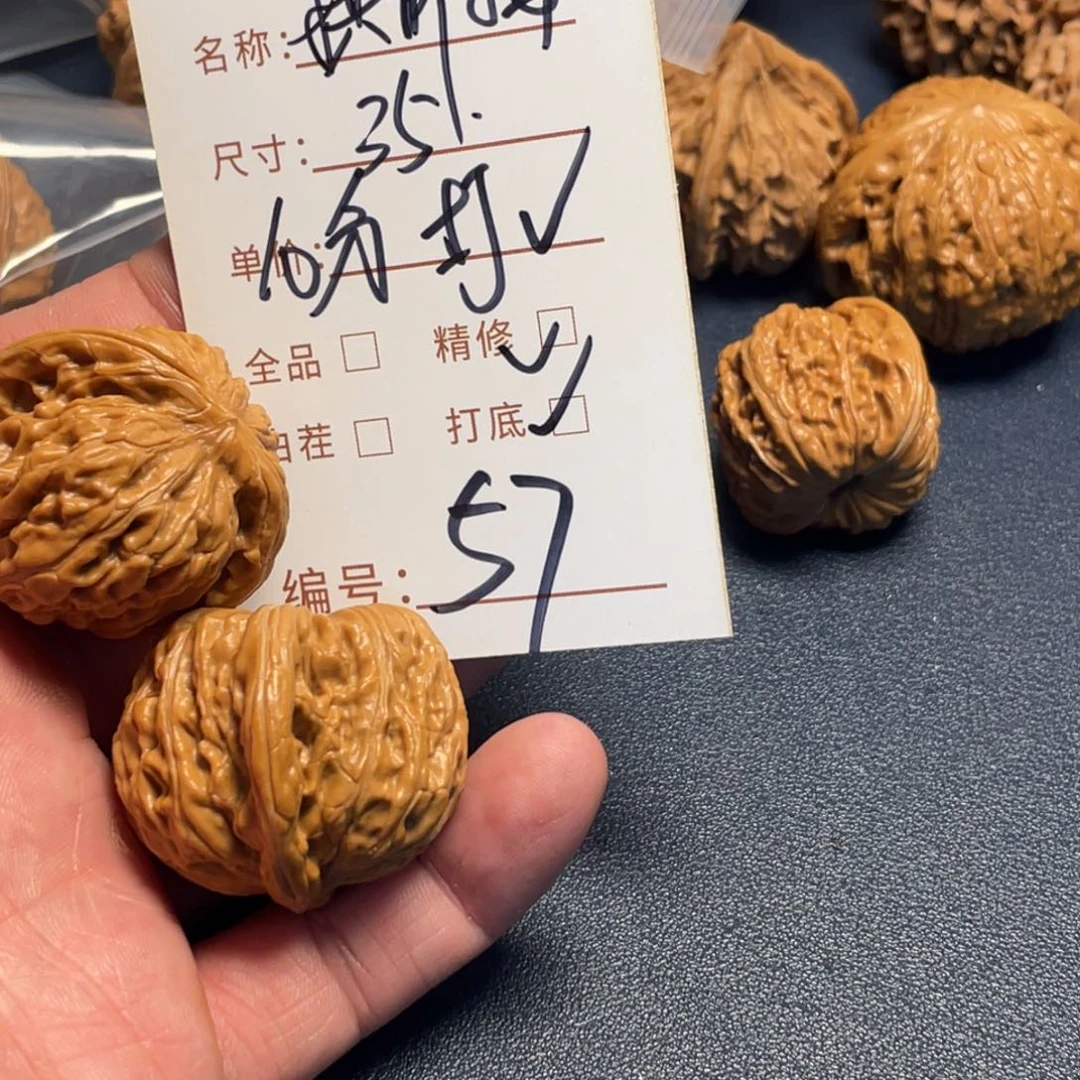 名称：
尺寸：351.
单价：10多 打✓
全品 □ 精修 □✓
白茬 □ 打底 □✓
编号：57